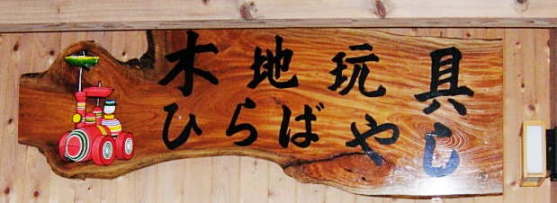 木地玩具
ひらばやし